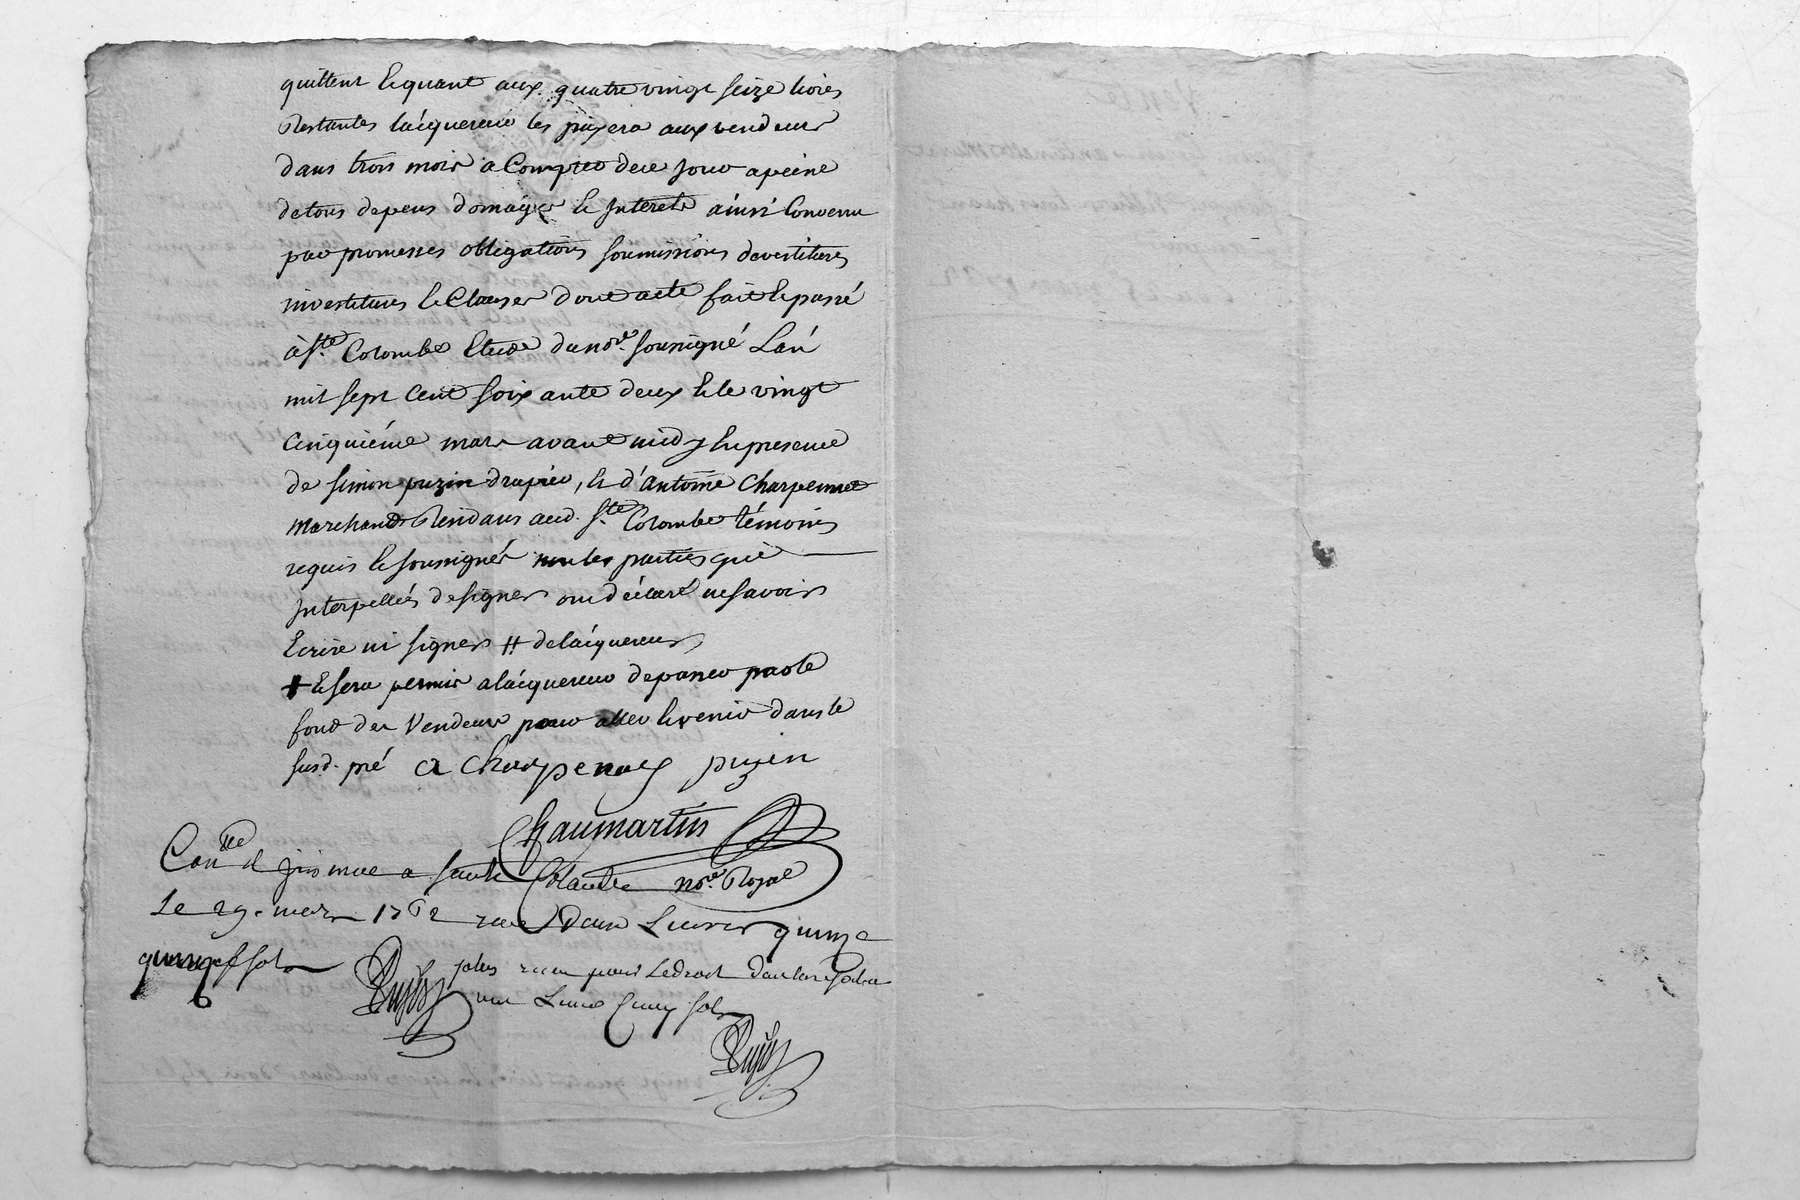 quittent et quant aux quatre vingt seize livres
Restantes lacquereur les payera aux vendeurs
dans trois mois a Compter de ce jour a peine
de tous depens domages et Interets ainsi Convenu
par promesses obligations soumissions devestitures
investitures et Clauses dont acte fait et passé
à Ste Colombe Etude du nore soussigné Lan
mil sept Cent soixante deux et le vingt
Cinquiéme mars avant midy En presence
de simon puzin drapier, et d'antoine Charpenney
Marchand Residans aud. Ste Colombe témoins
requis et soussignés non les parties qui
Interpellées de signer ont déclaré ne savoir
Ecrire ni signer # de lacquereur
+ Et sera permis a lacquereur de passer par le
fond des Vendeurs pour aller et venir dans le
susd. pré a Charpenay puzin
Chaumartin
nore Royal
Conlé et
a sainte Colombe
Le 29. mars 1762 reçu Deux Livres quinze
sols
plus reçu pour Le droit
une Livre Cinq sols